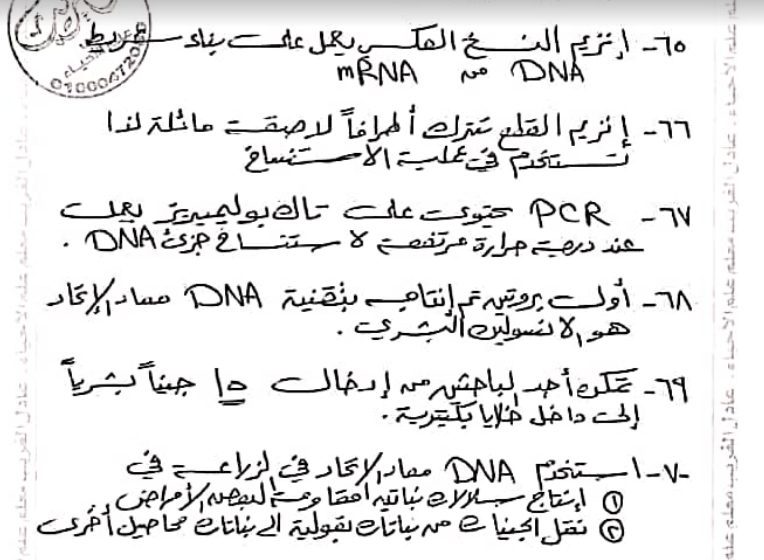 ٦٥- إنزيم النسخ العكسى يعمل على بناء شريط
DNA من mRNA
٦٦- إنزيم القطع تترك أطرافاً لاصقة مائلة لذا
تستخدم في عملية الاستنساخ
٦٧- PCR يحتوى على تاك بوليميريز يعمل
عند درجة حرارة مرتفعة لاستنساخ جزئ DNA .
٦٨- أول بروتين تم إنتاجه بتقنية DNA معاد الإتحاد
هو الانسولين البشري .
٦٩- تمكن أحد الباحثين من إدخال ١٥ جيناً بشرياً
إلى داخل خلايا بكتيرية .
٧٠- استخدم DNA معاد الإتحاد في الزراعة في
① إنتاج سلالات نباتية مقاومة لبعض الأمراض
② نقل الجينات من نباتات بقولية الى نباتات محاصيل أخرى
عادل الغريب معلم علم الاحياء